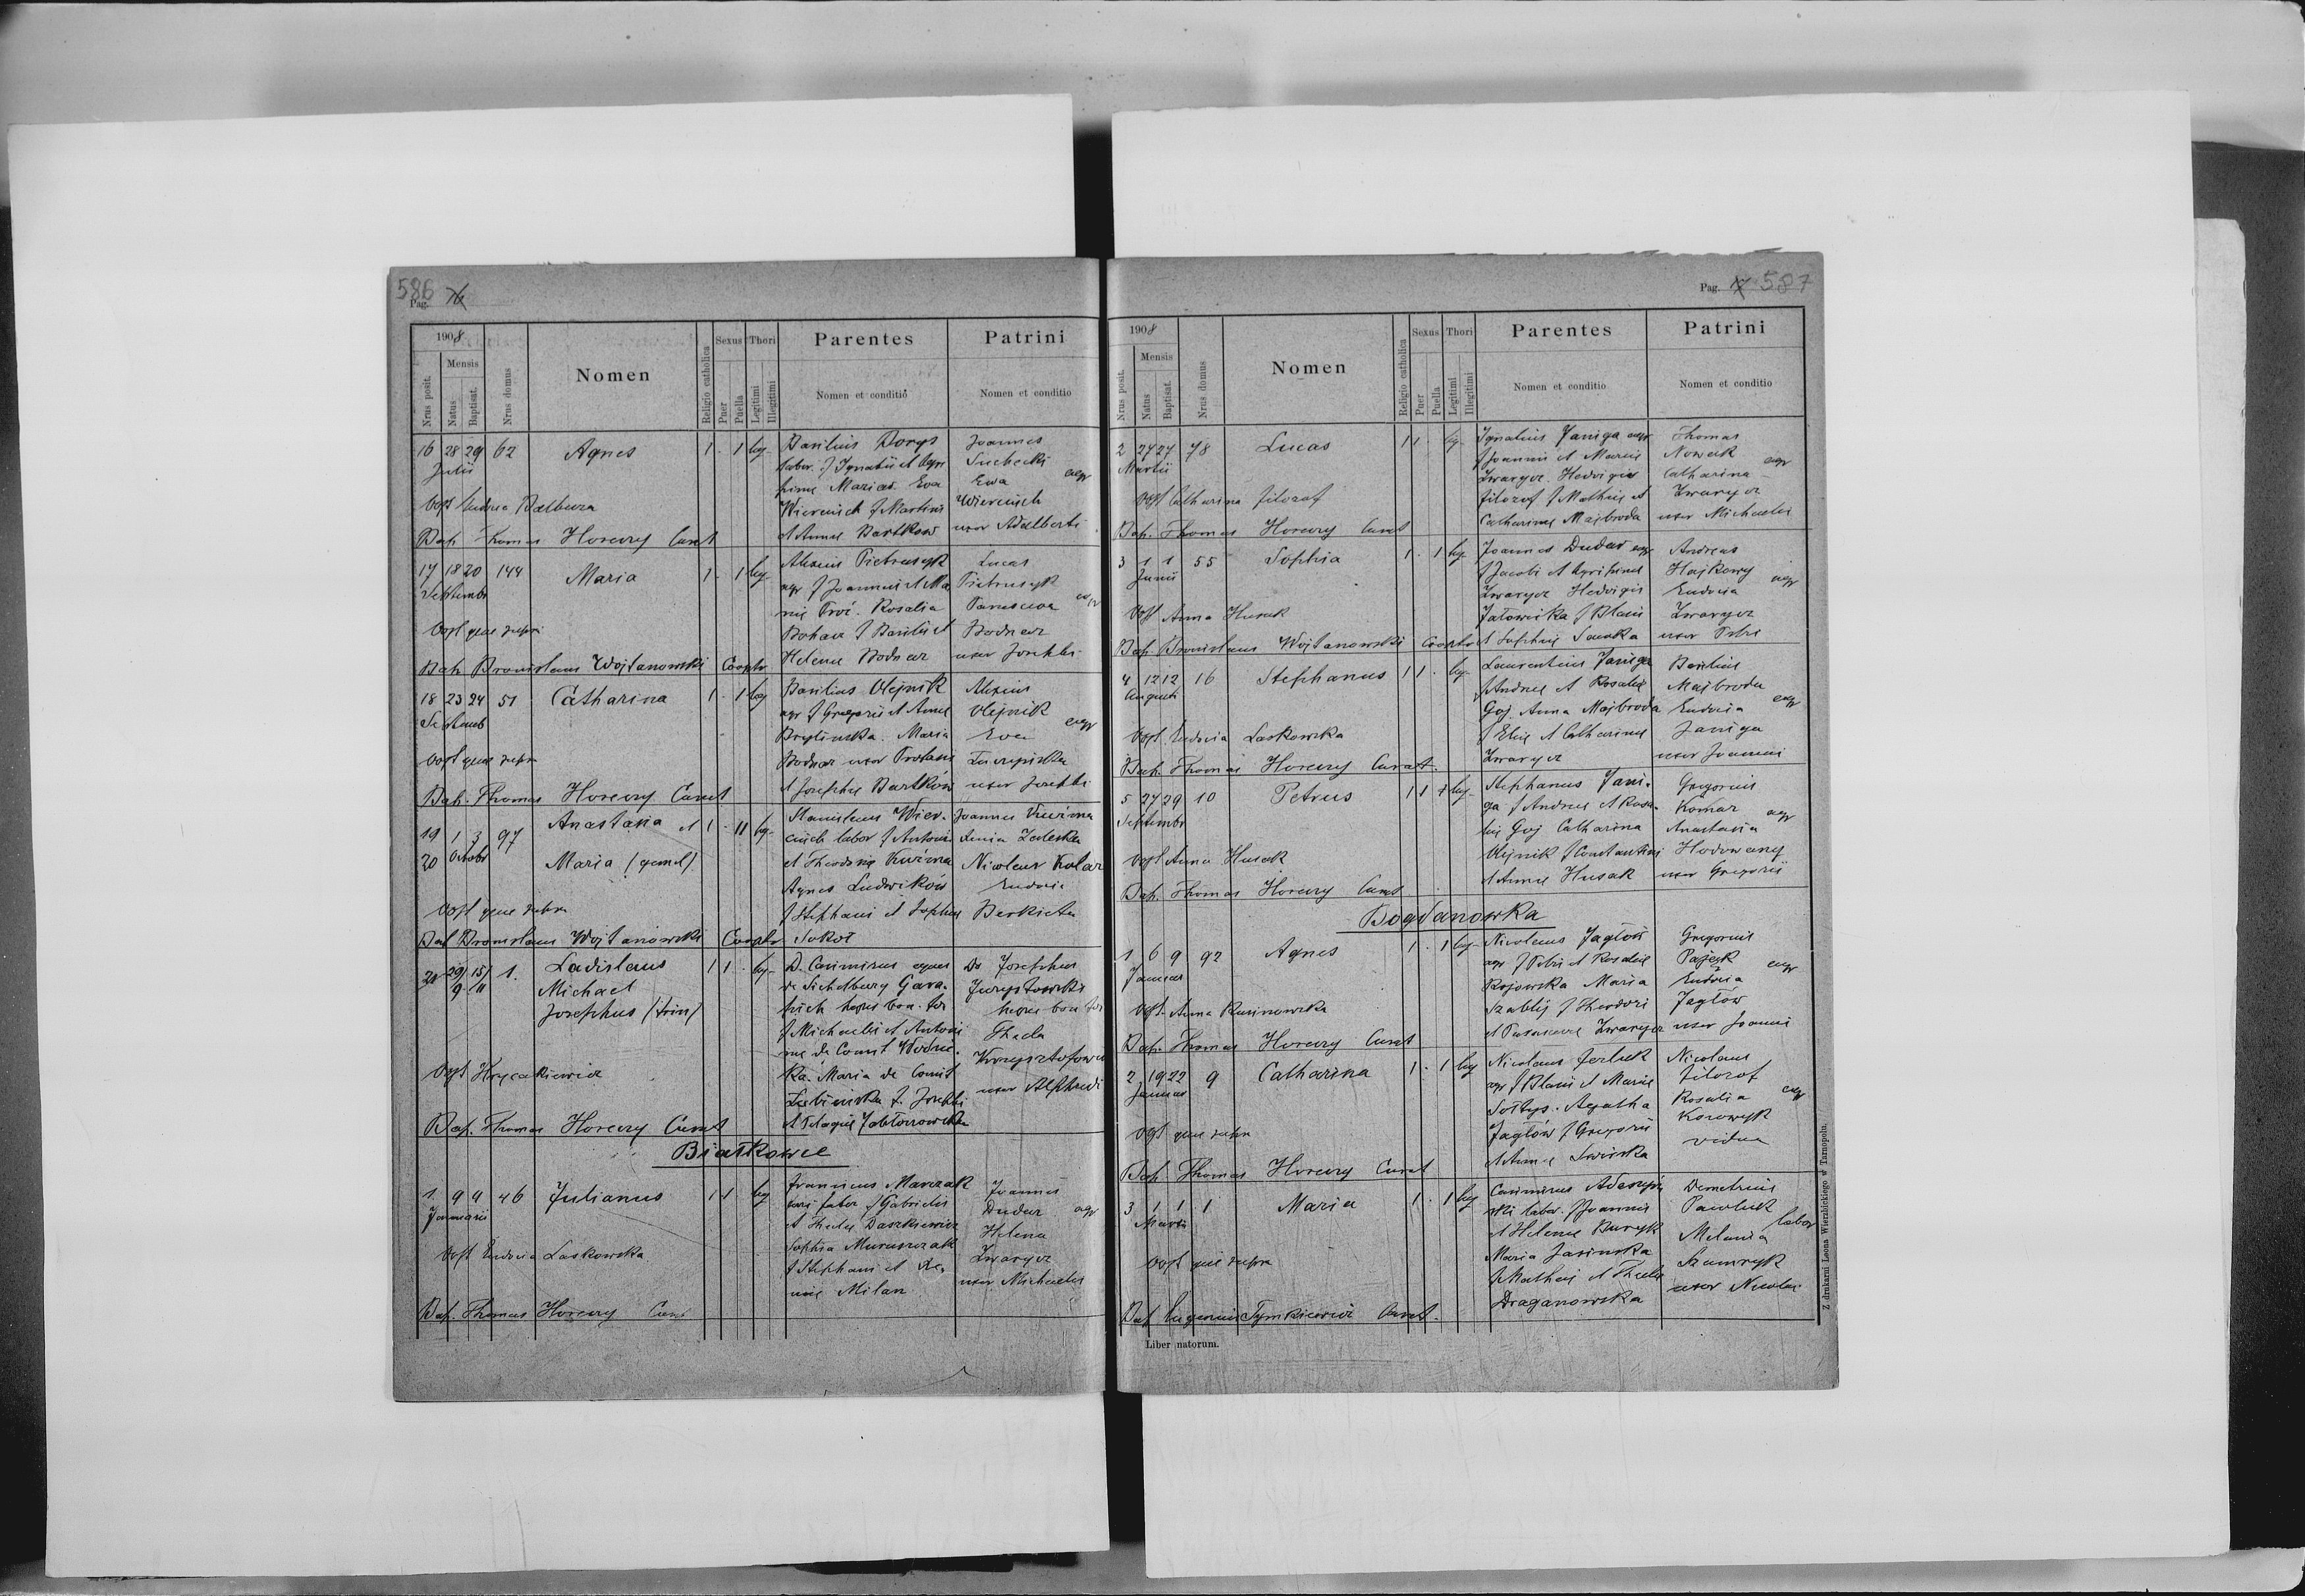 586
Pag. 76
1908
Mensis
Nrus posit.
Natus
Baptisat.
Nrus domus
Nomen
Religio catholica
Sexus
Puer
Puella
Thori
Legitimi
Illegitimi
Parentes
Nomen et conditio
Patrini
Nomen et conditio
16 28 29 62 Agnes 1 . 1 leg. Basilius Dorys Joannes
Julii labor. f Ignatii et Agri Suchecki
pinae Marias. Eva Ewa agr
Obst Eudocia Balbuza Wiercuich f Martini Wiercuich
Bap. Thomas Horeczy Curat et Annae Bartkow uxor Adalberti
17 18 20 144 Maria 1 . 1 leg. Alexius Pietruszyk Lucas
Septembr agr f Joannis et Ma Pietruszyk agr
riae Troć. Rosalia
Obst quae supra Bohacz f Basilii et Bodnar
Bap. Bronislaus Wojtanowski Cooptr Helenae Bodnar uxor Josephi
18 23 24 51 Catharina 1 . 1 leg Basilius Olejnik Alexius
Septemb agr f Gregorii et Annae Olejnik agr
Brylinska. Maria Eva
Obst quae supra Bodnar uxor Protasii
Bap. Thomas Horeczy Curat et Josephae Bartków uxor Josephi
19 1 3 97 Anastasia et 1 . 11 leg. Stanislaus Wier- Joannes Kuźma
20 Octobr Maria (gemel) cuich labor f Antonii Zaleska
et Theodosiae Kuźma Nicolaus Kolar
Agnes Ludwików Eudocia
Obst quae supra f Stephani et Sophiae Berkieta
Bap Bronislaus Wojtanowski Cooptr Sokoł
21 29/9 15/11 1. Ladislaus 1 1 . leg. D. Casimirus eques Ds Josephus
Michael de Sichelburg Gara- Jurystowski
Josephus (trin) pich heres bon. ter heres bon ter
f Michaelis et Antoni Thecla
nae de Comit Wodzic- Krzysztofowicz
Obst Hrycakiewicz ka. Maria de Comit uxor Alphredi
Lubieńska f. Josephi
Bap. Thomas Horeczy Curat et Pelagiae Jabłonowska
Białkowce
1. 9 9 46 Julianus 1 1 leg Franciscus Marczak Joannes
Januarii faber f Gabrielis Dudar agr
et Theclae Daszkiewicz Helena
Obst Eudocia Laskowska Sophia Muruszczak Zwarycz
f Stephani et uxor Michaelis
Milan
Bap. Thomas Horeczy Curat
Pag. 587
1908
Mensis
Nrus posit.
Natus
Baptisat.
Nrus domus
Nomen
Religio catholica
Sexus
Puer
Puella
Thori
Legitimi
Illegitimi
Parentes
Nomen et conditio
Patrini
Nomen et conditio
2 27 27 78 Lucas 1 1 . leg. Ignatius Janiga agr Thomas
Martii f Joannis et Mariae Nowak agr
Zwarycz. Hedvigis Catharina
Obst Catharina Filozof Filozof f Mathiae et Zwarycz
Bap. Thomas Horeczy Curat Catharinae Majbroda uxor Michaelis
3 1 1 55 Sophia 1 . 1 leg. Joannes Dudar agr Andreas
Junii f Jacobi et Agripinae Hajkowy agr
Zwarycz Hedvigis Eudocia
Obst Anna Husak f Blasii Zwarycz
Bap. Bronislaus Wojtanowski Cooptr et Sophiae Sawka uxor Petri
4 12 12 16 Stephanus 1 1 . leg. Laurentius Janiga Basilius
Augusti f Andreae et Rosaliae Majbroda agr
Goj. Anna Majbroda Eudocia
Obst. Eudocia Laskowska f Eliae et Catharinae Janiga
Bap. Thomas Horeczy Curat. Zwarycz uxor Joannis
5 27 29 10 Petrus 1 1 leg. Stephanus Jani- Gregorius
Septembr ga f Andreae et Rosa- Komar agr
liae Goj Catharina Anastasia
Obst Anna Husak Olejnik f Constantini Hodowany
Bap. Thomas Horeczy Curat et Annae Husak uxor Gregorii
Bogdanowka
1 6 9 92 Agnes 1 . 1 leg. Nicolaus Jagłów Gregorius
Januar agr f Petri et Rosaliae Pajęyk agr
Rojowska Maria Eudocia
Obst. Anna Rusinowska Szablij f Theodori Jagłów
Bap. Thomas Horeczy Curat et Parascevae Zwarycz uxor Joannis
2 19 22 9 Catharina 1 . 1 leg Nicolaus Jerluk Nicolaus
Januar agr f Blasii et Mariae Filozof
Sołtys. Agatha Rosalia agr
Obst quae supra Jagłów f Gregorii Korowyk
Bap. Thomas Horeczy Curat et Annae Swirska vidua
3 1 1 1 Maria 1 . 1 leg Casimirus Adaszyń Demetrius
Martii ski labor. f Joannis Pawluk
et Helenae Buryk Melania labor
Obst quae supra Maria Jasinska Szamryk
f Mathiae et Theclae uxor Nicolai
Draganowska
Bap Eugenius Tymkiewicz Curat.
Liber natorum.
Z drukarni Leona Wierzbickiego w Tarnopolu.